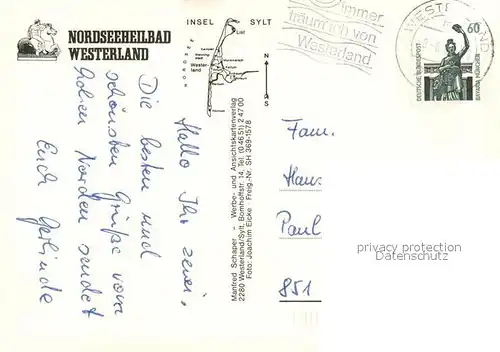 NORDSEEHEILBAD
WESTERLAND
INSEL SYLT
List
Wester-
land
N
S
Immer
träum' ich von
Westerland
WESTERLAND
60
DEUTSCHE BUNDESPOST
BAVARIA MÜNCHEN
Hallo Ihr zwei,
Die besten und
schönsten Grüße vom
hohen Norden sendet
Euch Gerlinde
Manfred Schaper – Werbe- und Ansichtskartenverlag
2280 Westerland/Sylt, Bomhoffstr. 14, Tel. (0 46 51) 2 47 00
Foto: Joachim Eicke Freig.-Nr. SH 369-1578
Fam.
Hans
Paul
851
privacy protection
Datenschutz